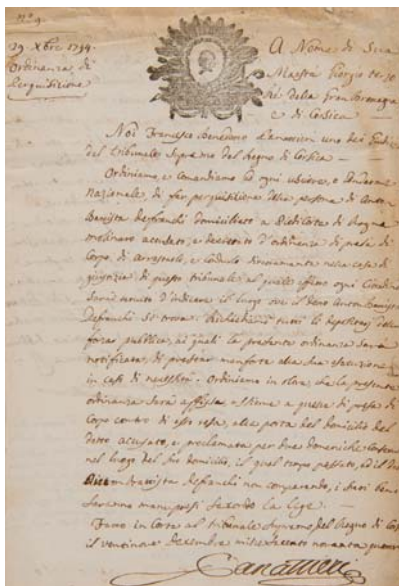 N.º 9.
29. Xbre 1794.
Ordinanza di
Perquisizione
A Nome di Sua
Maestà Giorgio terzo
Rè della Gran Bretagna
e di Corsica
Noi Francesco Benedetto uno dei Giudici
del tribunale Supremo del Regno di Corsica
Ordiniamo, e Comandiamo ad ogni usciere, o
Nazionale, di far perquisizione della persona di Anton
Battista Defranchi domiciliato a
molinaro accusato, e decretato d'ordinanza di presa di
Corpo, di arrestarlo, e Condurlo nella casa di
giustizia di questo tribunale, al quale effetto ogni Cittadino
sarà tenuto d'indicare il luogo ove il detto Anton Battista
Defranchi si trova. tutti li depositarj della
forza pubblica, ai quali la presente ordinanza sarà
notificata, di prestar manforte alla sua esecuzione
in caso di. Ordiniamo in oltre che la presente
ordinanza sarà affissa, e presa di
Corpo contro di esso resa, alla porta del domicilio del
detto accusato, e proclamata per due domeniche
nel luogo del suo domicilio, il qual tempo passato, ed il
Defranchi non comparendo, i suoi beni
saranno secondo la legge.
Fatto in Corte al tribunale Supremo del Regno di
il ventinove Decembre mille sette cento novanta